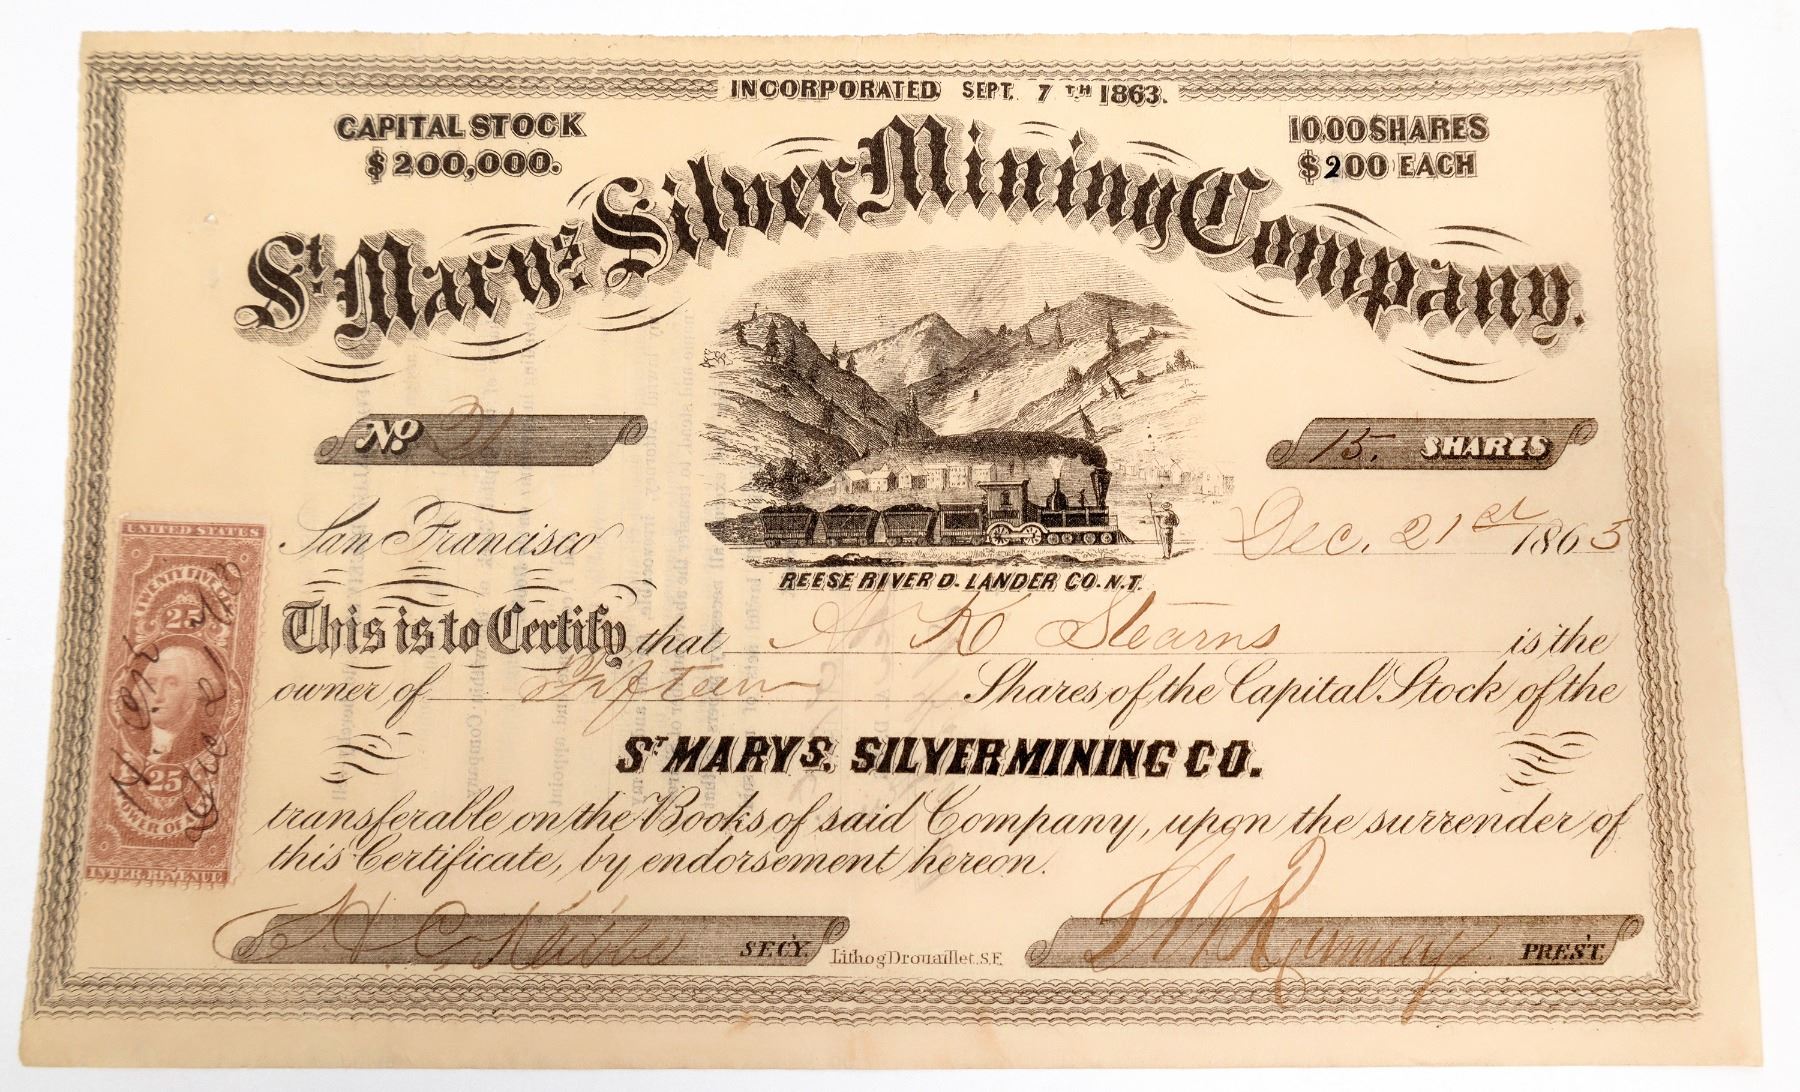 INCORPORATED SEPT. 7TH 1863.
CAPITAL STOCK
$200,000.
10,00 SHARES
$200 EACH
St. Marys. Silver Mining Company.
No.
15. SHARES
San Francisco
Dec. 21st 1863
REESE RIVER D. LANDER CO. N.T.
This is to Certify that K Stearns is the
owner of Fifteen Shares of the Capital Stock of the
ST MARYS. SILVER MINING CO.
transferable on the Books of said Company, upon the surrender of
this Certificate, by endorsement hereon.
H. C. Kibbe SECY.
Lithog Drouaillet. S.F.
Ramsey PREST.
UNITED STATES
TWENTY FIVE C
25
25
POWER OF A
INTER. REVENUE
Dec 21